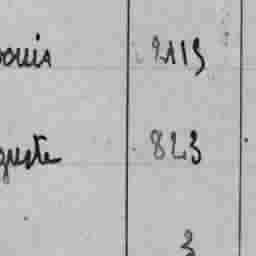 ouis 2113
guste 823
3